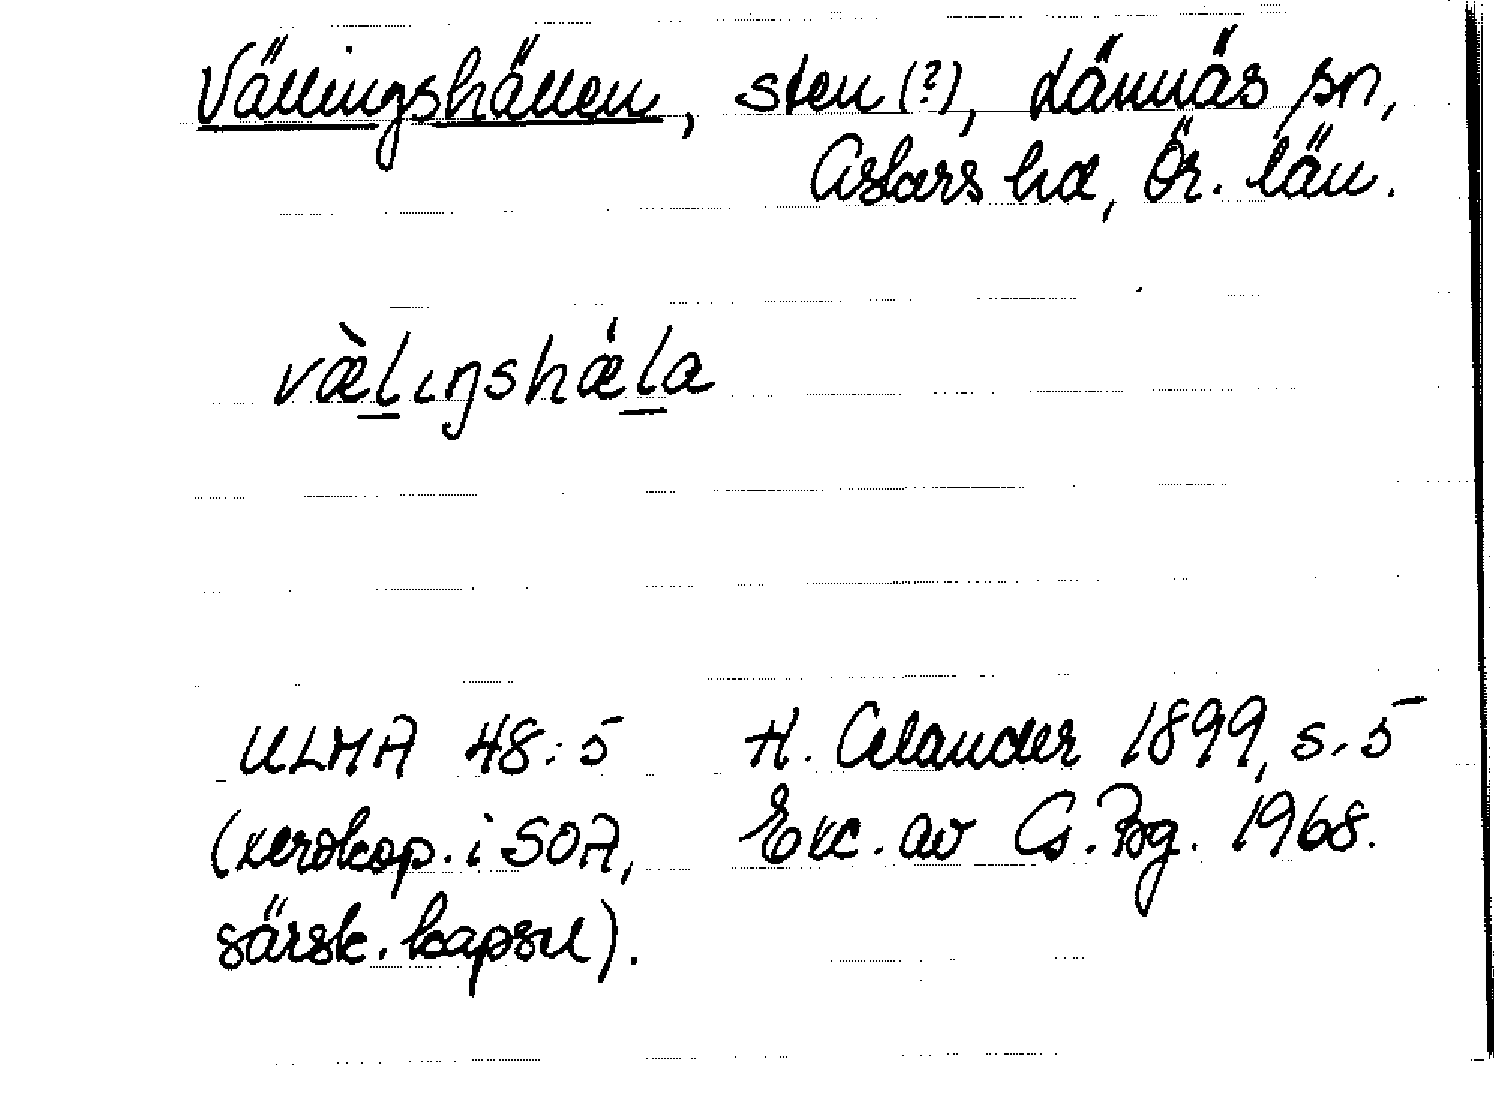 Vällingshällen, sten (?), Lännäs sn,
Askers hd, Ör. län.
væ̀lıŋshǽla
ULMA 48:5 H. Celander 1899, s. 5
(xerokop. i SOA, Exc. av G. Bg. 1968.
särsk. kapsel).